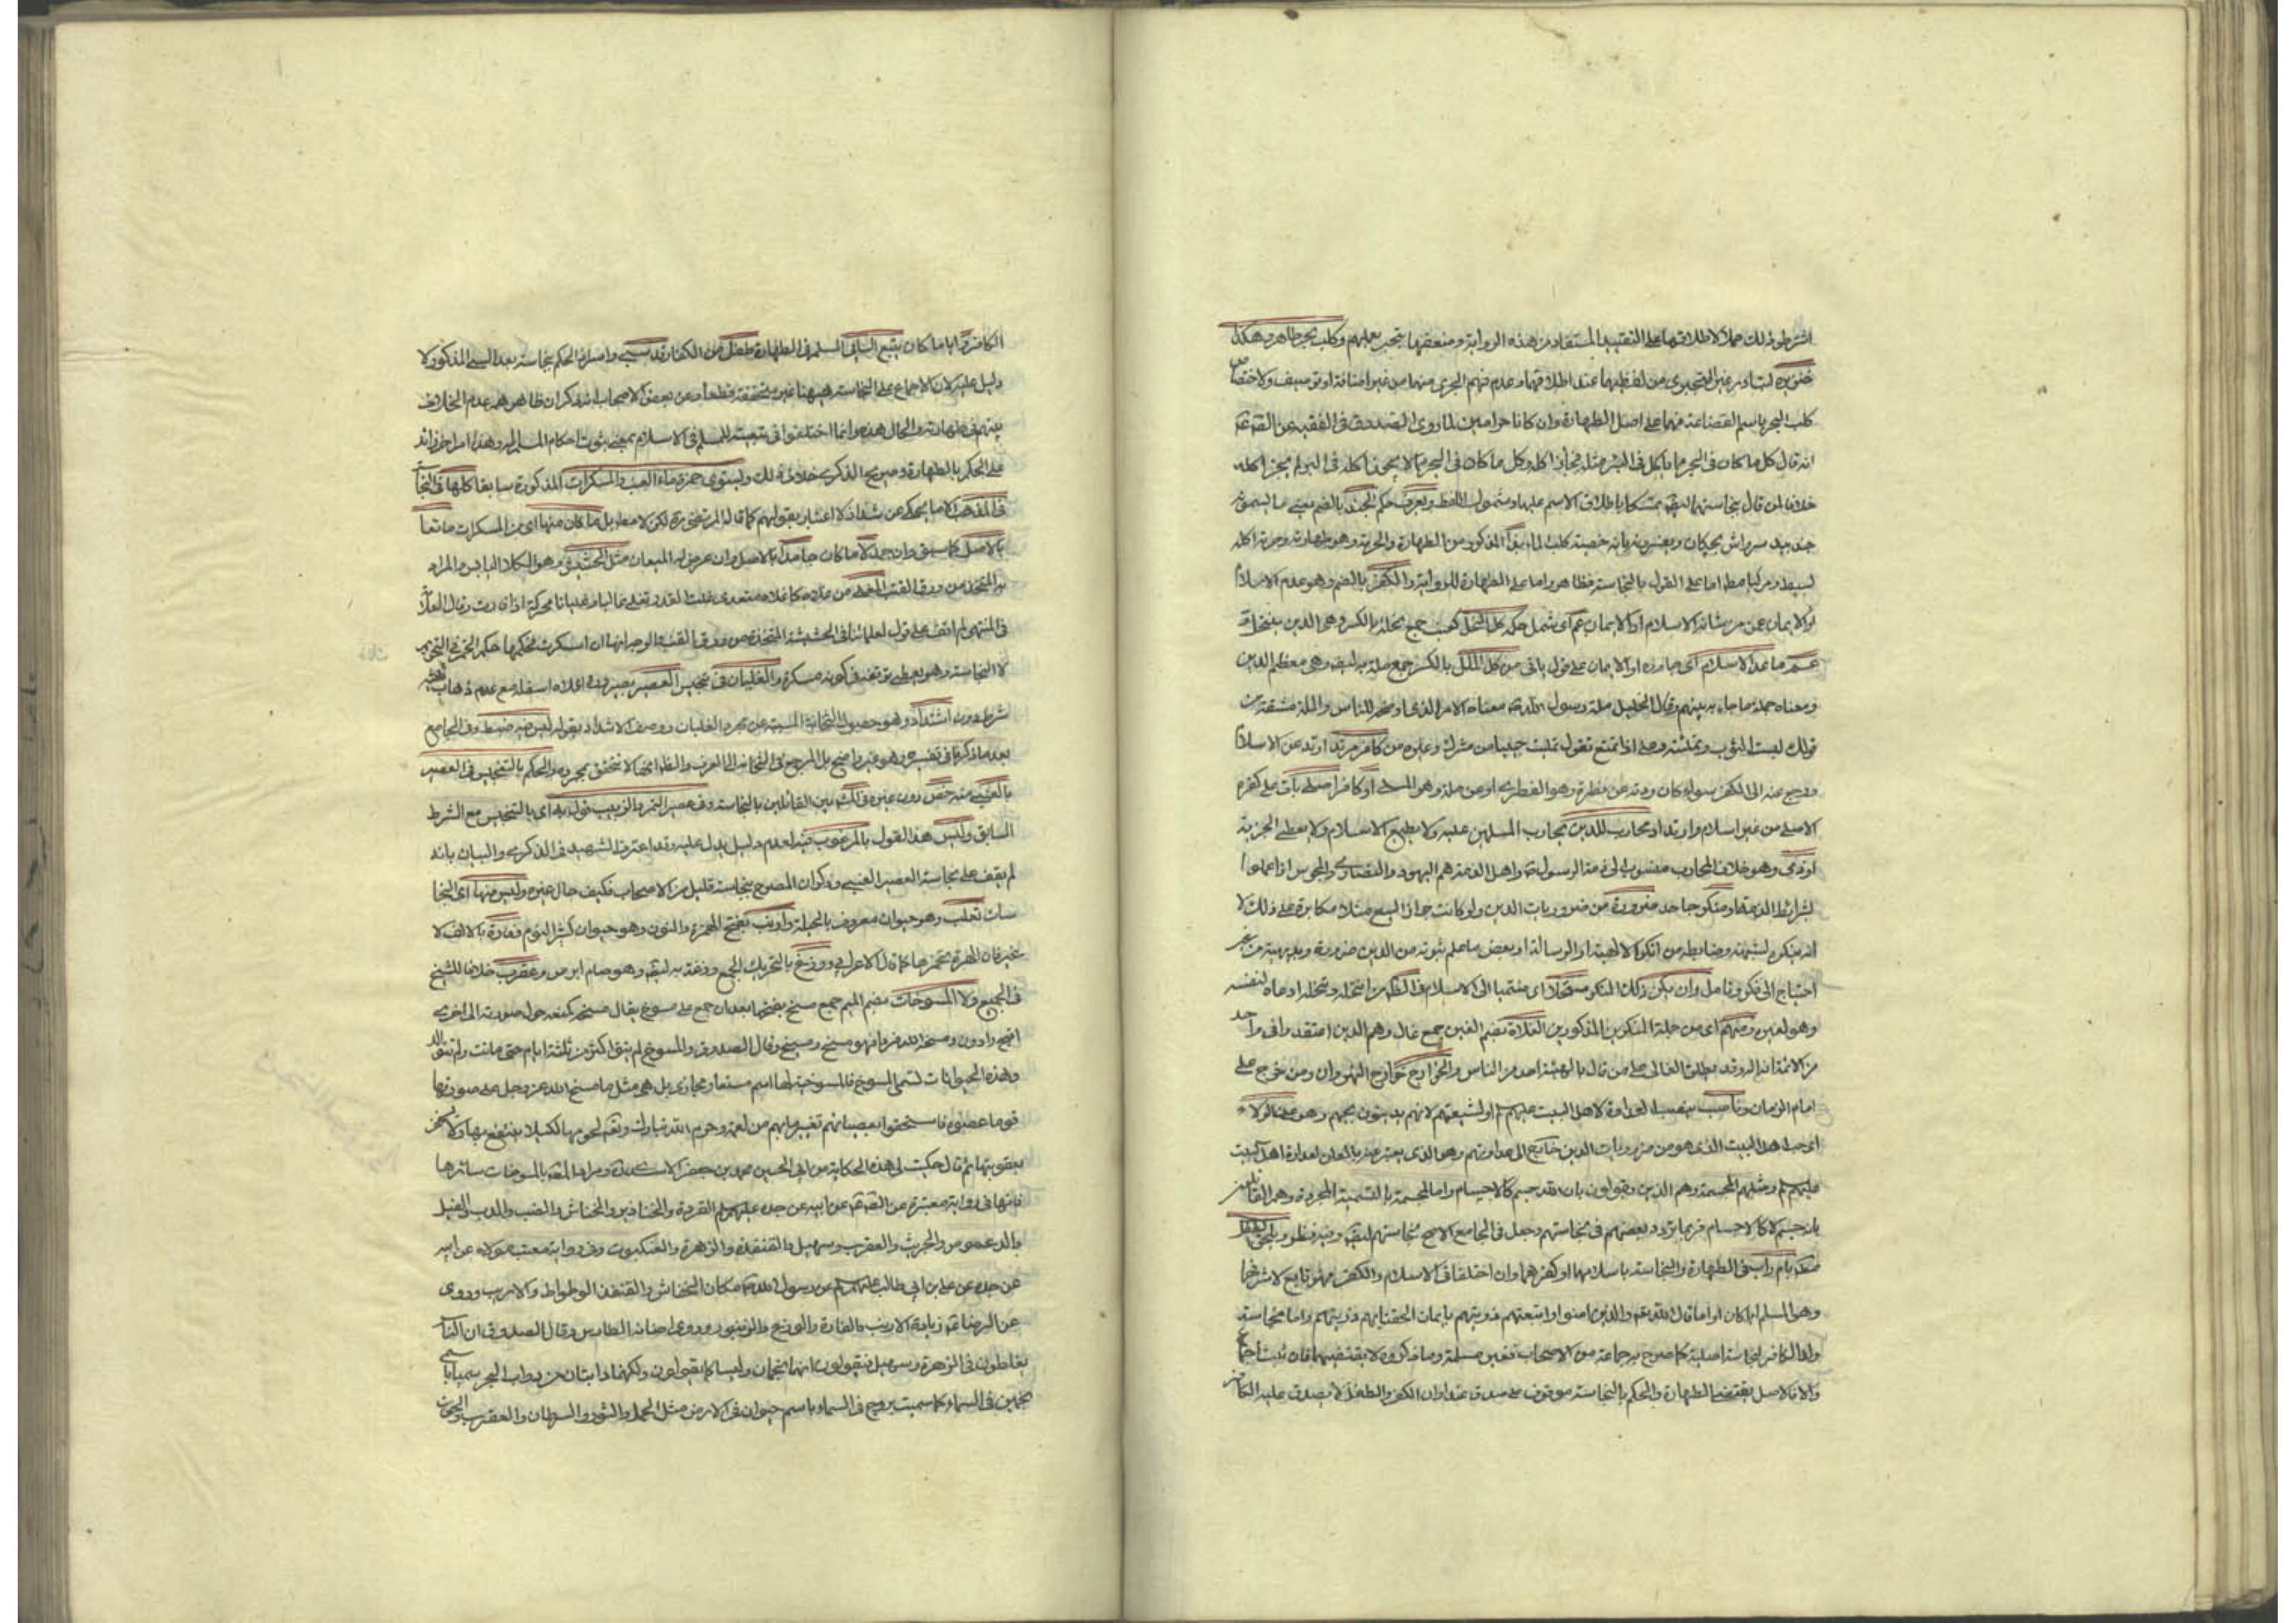 اشترطوا ذلك حملا لاطلاقها على التقييد المستفاد من هذه الرواية ومنعقها بتحر بعليهم وكلب بحر طاهر وهكذا
خنزيره لتبادر غير البحري من لفظهما عند اطلاقهما وعدم فهم البحري منهما من غير اضافة او توصيف ولاختصاص
كلب البحر باسم القضاعة فهما على اصل الطهارة وان كانا حرامين لما روى الصدوق في الفقيه عن الصادق
انه قال كل ما كان في البحر مما يؤكل في البر مثله فجائز اكله وكل ما كان في البحر مما لا يجوز اكله في البر لم يجز اكله
خلافا لمن قال بنجاستهما ايضا تمسكا باطلاق الاسم عليهما وشمول اللفظ ويعرف حكم الجند بالضم يعني ما يسمونه
جند بيدستر اش بچكان ويفسرونه بانه خصية كلب الماء بقرأ المذكور من الطهارة والحرمة وهو طهارته وحرمة اكله
بسيطا ومركبا مطلقا اما على القول بالنجاسة فظاهر واما على الطهارة للرواية والكفر بالضم وهو عدم الاسلام
او الايمان عمن من شانه الاسلام او الايمان عم اى شمل حكمه كل النحل كعنب جمع نحلة بالكسر وهى الدين بنحلة
عم ما عدا الاسلام اى جاوزه او الايمان على قول باقى من كل الملل بالكسر جمع ملة به ايضا وهى معظم الدين
ومعناه جملة ما جاء به نبيهم وقال الخليل ملة رسول الله معناه الامر الذى اوضح للناس والملة مشتقة من
قولك لبست الثوب وتمليته وعلى اذا تمتع تقول تمليت حبيبا من مشرك وغيره من كافر مرتد ارتد عن الاسلام
ورجع عنه الى الكفر سواء كان ردته عن فطرة وهو الفطرى او عن ملة وهو الملى او كافر اصلى باق على كفره
الاصلى من غير اسلام وارتداد محارب للدين يحارب المسلمين عليه ولا يطيع الاسلام ولا يعطى الجزية
او ذمى وهو خلاف المحارب منسوب الى ذمة الرسول واهل الذمة هم اليهود والنصارى والمجوس اذا عملوا
بشرائط الذمة او منكر جاحد ضرورة من ضروريات الدين ولو كانت جواز البيع مثلا مكابرة على ذلك لا
انه ينكره لشبهة وضابطه من انكر الالهية او الرسالة او بعض ما علم ثبوته من الدين ضرورة وبديهية من غير
احتياج الى فكر وتامل وان يكن ذلك المنكر منتحلا اى منتميا الى الاسلام فى الظاهر انتحله وتنحله ادعاه لنفسه
وهو لغيره ومنهم اى من جملة المنكرين المذكورين الغلاة بضم الغين جمع غال وهم الذين اعتقدوا فى واحد
من الائمة انه اله وقد يطلق الغالى على من قال بالهية احد من الناس والخوارج خوارج النهروان ومن خرج على
امام الزمان وناصب ينصب العداوة لاهل البيت عليهم السلم او لشيعتهم لانهم يدينون بحبهم وهو على الولاء
اى حب اهل البيت الذى هو من ضروريات الدين خارج الى عداوتهم وهو الذى يعتبر عنه بالمعلن لعداوة اهل البيت
عليهم السلم ومثلهم المجسمة وهم الذين يقولون بان الله جسم كالاجسام واما المجسمة بالتسمية المجردة وهم القائلين
بانه جسم لا كالاجسام فربما تردد بعضهم فى نجاستهم وجعل فى الجامع الاصح نجاستهم ايضا وفيه نظر ويلحق الطفل
حكمه بام واب فى الطهارة والنجاسة باسلامهما او كفرهما وان اختلفا فى الاسلام والكفر فهو تابع لاشرفهما
وهو المسلم ابا كان او اما قال الله تعالى والذين امنوا واتبعتهم ذريتهم بايمان الحقنا بهم ذريتهم واما نجاسة
ولد الكافر نجاسة اصلية كما صرح به جماعة من الاصحاب فغير مسلمة وما ذكروه لا يقتضيها فان ثبت اجماع
والا فالاصل يقتضى الطهارة والحكم بالنجاسة موقوف على صدق عنوان الكفر والطفل لا يصدق عليه الكافر
الكافر وايا ما كان يتبع السابى المسلم فى الطهارة طفل من الكفار قد سبى واستمرار الحكم بنجاسته بعد السبى المذكور لا
دليل عليه لان الاجماع على النجاسة هيهنا غير متحققة قطعا وعن بعض الاصحاب انه ذكر ان ظاهرهم عدم الخلاف
بينهم فى طهارته والحال هذه وانما اختلفوا فى تبعيته للمسلم فى الاسلام بمعنى ثبوت احكام المسلم له وهذا امر اخر زائد
على الحكم بالطهارة وصريح الذكرى خلاف ذلك ويستوى خمرة ماء العنب والمسكرات المذكورة سابقا كلها فى النجاسة
فى المذهب الا ما يحكى عن شذاذ لا اعتبار بقولهم كما قاله المرتضى ره لكن لا مطلقا بل ما كان منها اى من المسكرات مائعا
بالاصل كما سبق وان جمد لا ما كان جامدا بالاصل وان عرض له الميعان مثل الحشيش وهو الكلاء اليابس والمراد
به المتخذ من ورق القنب المغلى من غلاه كاغلاه متعدى غلت القدر تغلى غاليا وغليانا محركة اذا فارت وقال العلامة
فى المنتهى لم اقف على قول لعلمائنا فى الحشيشة المتخذة من ورق القنب والوجه انها ان اسكرت فحكمها حكم الخمر فى التحريم
لا النجاسة وهو يعطى توقفه فى كونه مسكرة والغليان فى تنجيس العصير بصيرورة اعلاه اسفله مع عدم ذهاب ثلثيه
شرط دون اشتداد وهو حصول الثخانة المسببة عن مجرد الغليان ووصف الاشتداد بقوله ليس فيه ضبط وفى الجامع
بعد ما ذكرنا فى تفسيره وهو غير واضح بل المرجع فى الثخانة الى العرف والظ انها لا تتحقق بمجرده والحكم بالتنجيس فى العصير
بالعنبى منه خص دون غيره فى الشهير بين القائلين بالنجاسة وفى عصير التمر والزبيب قول به اى بالتنجيس مع الشرط
السابق وليس هذا القول بالمرغوب فيه لعدم دليل يدل عليه وقد اعترف الشهيد فى الذكرى والبيان بانه
لم يقف على نجاسة العصير العنبى وذكر ان المصرح بنجاسته قليل من الاصحاب فكيف حال غيره وليس منها اى النجا
سات ثعلب وهو حيوان معروف بالحيلة وارنب بفتح الهمزة والنون وهو حيوان كثير النوم وفارة بالالف لا
غير فان الهمزة تخمرها كما قال الاعرابى ووزغ بالتحريك الجمع وزغة به ايضا وهو سام ابرص وعقرب خلافا للشيخ
فى الجميع ولا المسوخات بضم الميم جمع مسخ بفتحها بعد ان جمع على مسوخ يقال مسخه كمنعه حول صورته الى اخرى
اقبح وادون ومسخه الله قردا فهو مسخ ومسيخ وقال الصدوق والمسوخ لم يبق اكثر من ثلثة ايام حتى ماتت ولم تتوالد
وهذه الحيوانات تسمى المسوخ فالمسوخية لها اسم مستعار ومجازى بل هى مثل ما مسخ الله عز وجل على صورتها
قوما عصوه فاستحقوا بعصيانهم تغيير ما بهم من نعمة وحرم الله تبارك وتعالى لحومها لكيلا ينتفع بها ولا يستخف
بعقوبتها ثم قال حكيت لى هذه الحكاية من ابى الحسين محمد بن جعفر الاسدى ره ومراد المص بالمسوخات سائرها
فانها فى رواية معتبرة عن الصادق عن ابيه عن جده عليهم السلم القردة والخنازير والخفاش والضب والدب والفيل
والدعموص والجريث والعقرب وسهيل والقنفذ والزهرة والعنكبوت وفى رواية معتب مولاه عن ابيه
عن جده عن على بن ابى طالب عليهم السلم عن رسول الله مكان الخفاش والقنفذ الوطواط والارنب وروى
عن الرضا زيادة الارنب والفارة والوزغ والزنبور وروى اضافة الطاوس وقال الصدوق ان الناس
يغلطون فى الزهرة وسهيل فيقولون انهما نجمان وليسا كما يقولون ولكنهما دابتان من دواب البحر سميتا باسمى
نجمين فى السماء كما سميت بروج فى السماء باسم حيوان فى الارض مثل الحمل والثور والسرطان والعقرب والحوت